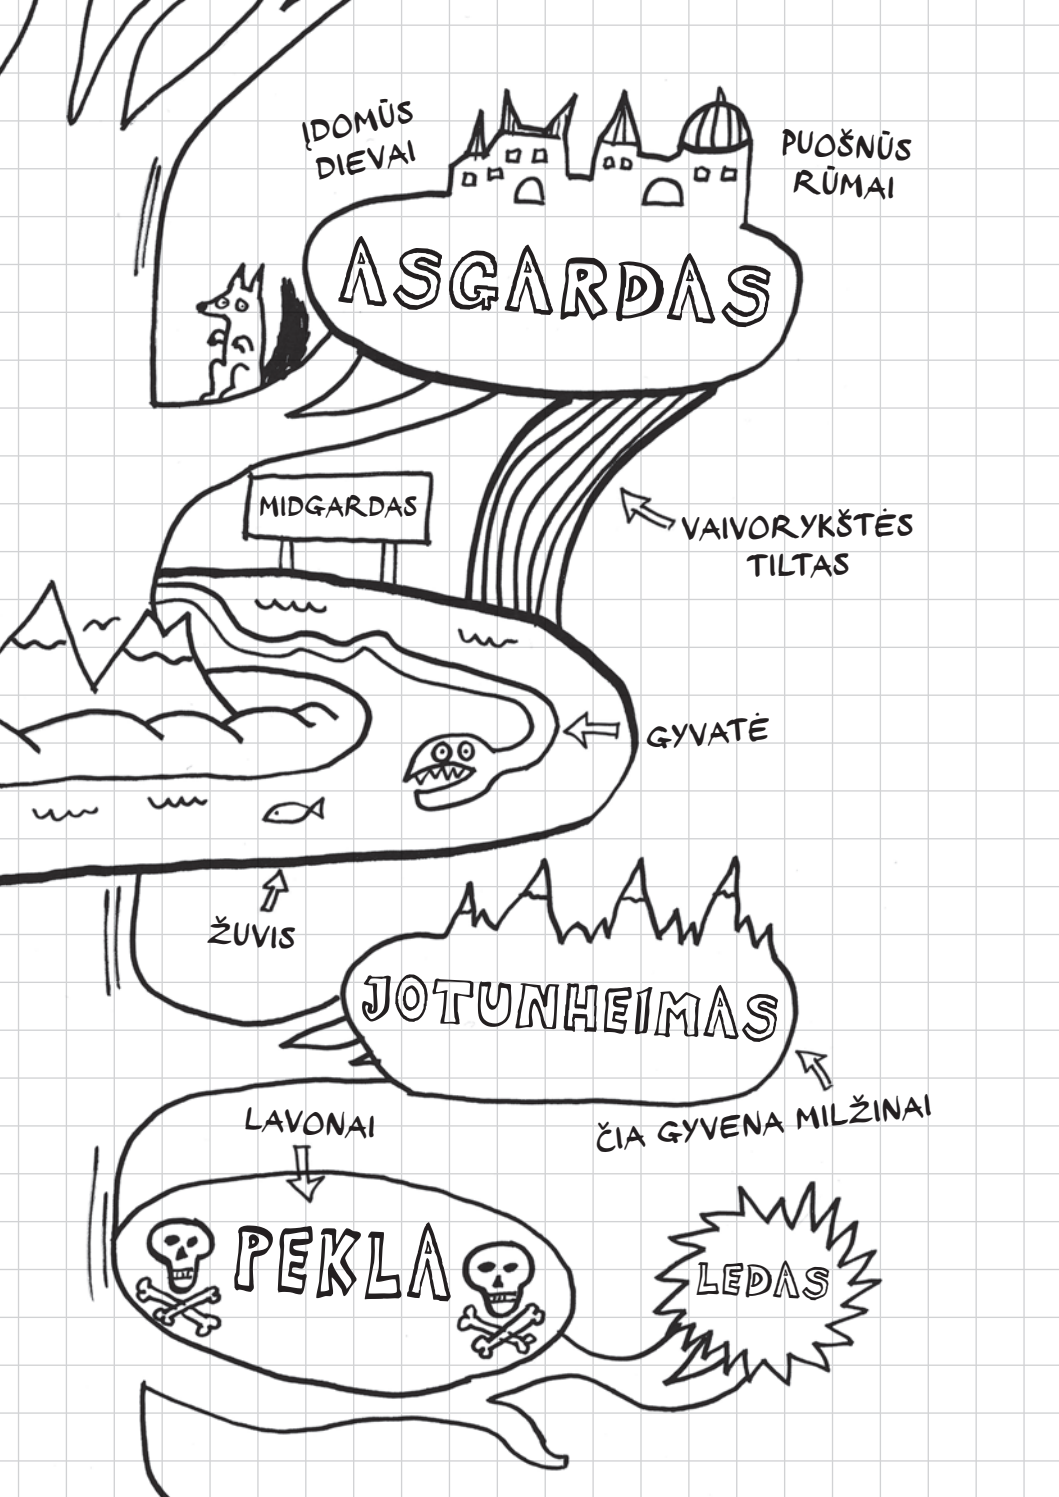 ĮDOMŪS
DIEVAI
PUOŠNŪS
RŪMAI
ASGARDAS
MIDGARDAS
VAIVORYKŠTĖS
TILTAS
GYVATĖ
ŽUVIS
JOTUNHEIMAS
ČIA GYVENA MILŽINAI
LAVONAI
PEKLA
LEDAS